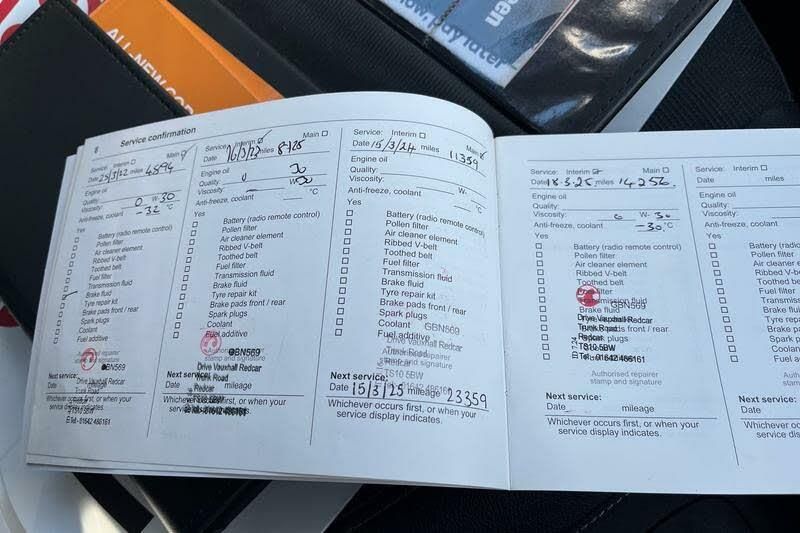 ALL-NEW COR
now, pay later
pen
8 Service confirmation
Service: Interim □ Main ✓
Date 25/3/22 miles 4894
Engine oil
Quality:
Viscosity: 0 W-30
Anti-freeze, coolant -32 °C
Yes
□ Battery (radio remote control)
□ Pollen filter
□ Air cleaner element
□ Ribbed V-belt
□ Toothed belt
□ Fuel filter
□ Transmission fluid
Brake fluid
□ Tyre repair kit
□ Brake pads front / rear
□ Spark plugs
□ Coolant
□ Fuel additive
Authorised repairer
stamp and signature
GBN569
Drive Vauxhall Redcar
Trunk Road
Redcar
TS10 5BW
Tel - 01642 486161
Next service:
Date mileage
Whichever occurs first, or when your
service display indicates.
Service: Interim ✓ Main □
Date 16/3/23 miles 8125
Engine oil
Quality: 0 30
Viscosity: W-30
Anti-freeze, coolant °C
Yes
□ Battery (radio remote control)
□ Pollen filter
□ Air cleaner element
□ Ribbed V-belt
□ Toothed belt
□ Fuel filter
□ Transmission fluid
□ Brake fluid
□ Tyre repair kit
□ Brake pads front / rear
□ Spark plugs
□ Coolant
□ Fuel additive
Authorised repairer
stamp and signature
GBN569
Drive Vauxhall Redcar
Trunk Road
Redcar
TS10 5BW
Tel - 01642 486161
Next service:
Date mileage
Whichever occurs first, or when your
service display indicates.
Service: Interim □ Main ✓
Date 15/3/24 miles 11359
Engine oil
Quality:
Viscosity: W-
Anti-freeze, coolant °C
Yes
□ Battery (radio remote control)
□ Pollen filter
□ Air cleaner element
□ Ribbed V-belt
□ Toothed belt
□ Fuel filter
□ Transmission fluid
□ Brake fluid
□ Tyre repair kit
□ Brake pads front / rear
□ Spark plugs
□ Coolant
□ Fuel additive
Authorised repairer
stamp and signature
GBN569
Drive Vauxhall Redcar
Trunk Road
Redcar
TS10 5BW
Tel - 01642 486161
Next service:
Date 15/3/25 mileage 23359
Whichever occurs first, or when your
service display indicates.
Service: Interim ✓ Main □
Date 18-3-25 miles 14256.
Engine oil
Quality:
Viscosity: 0 W- 30
Anti-freeze, coolant -30 °C
Yes
□ Battery (radio remote control)
□ Pollen filter
□ Air cleaner element
□ Ribbed V-belt
□ Toothed belt
□ filter
□ mission fluid
□ Brake fluid
□ Brake pads front / rear
GBN569
Drive Vauxhall Redcar
Trunk Road
Redcar
TS10 5BW
Tel - 01642 486161
Authorised repairer
stamp and signature
Next service:
Date mileage
Whichever occurs first, or when your
service display indicates.
Service: Interim
Date miles
Engine oil
Quality:
Viscosity:
Anti-freeze, coolant
Yes
□ Battery (radio
□ Pollen filter
□ Air cleaner e
□ Ribbed V-be
□ Toothed belt
□ Fuel filter
□ Transmission
□ Brake fluid
□ Tyre repair k
□ Brake pads
□ Spark plugs
□ Coolan
□ Fuel a
Next service:
Date
Whichever occ
service dis